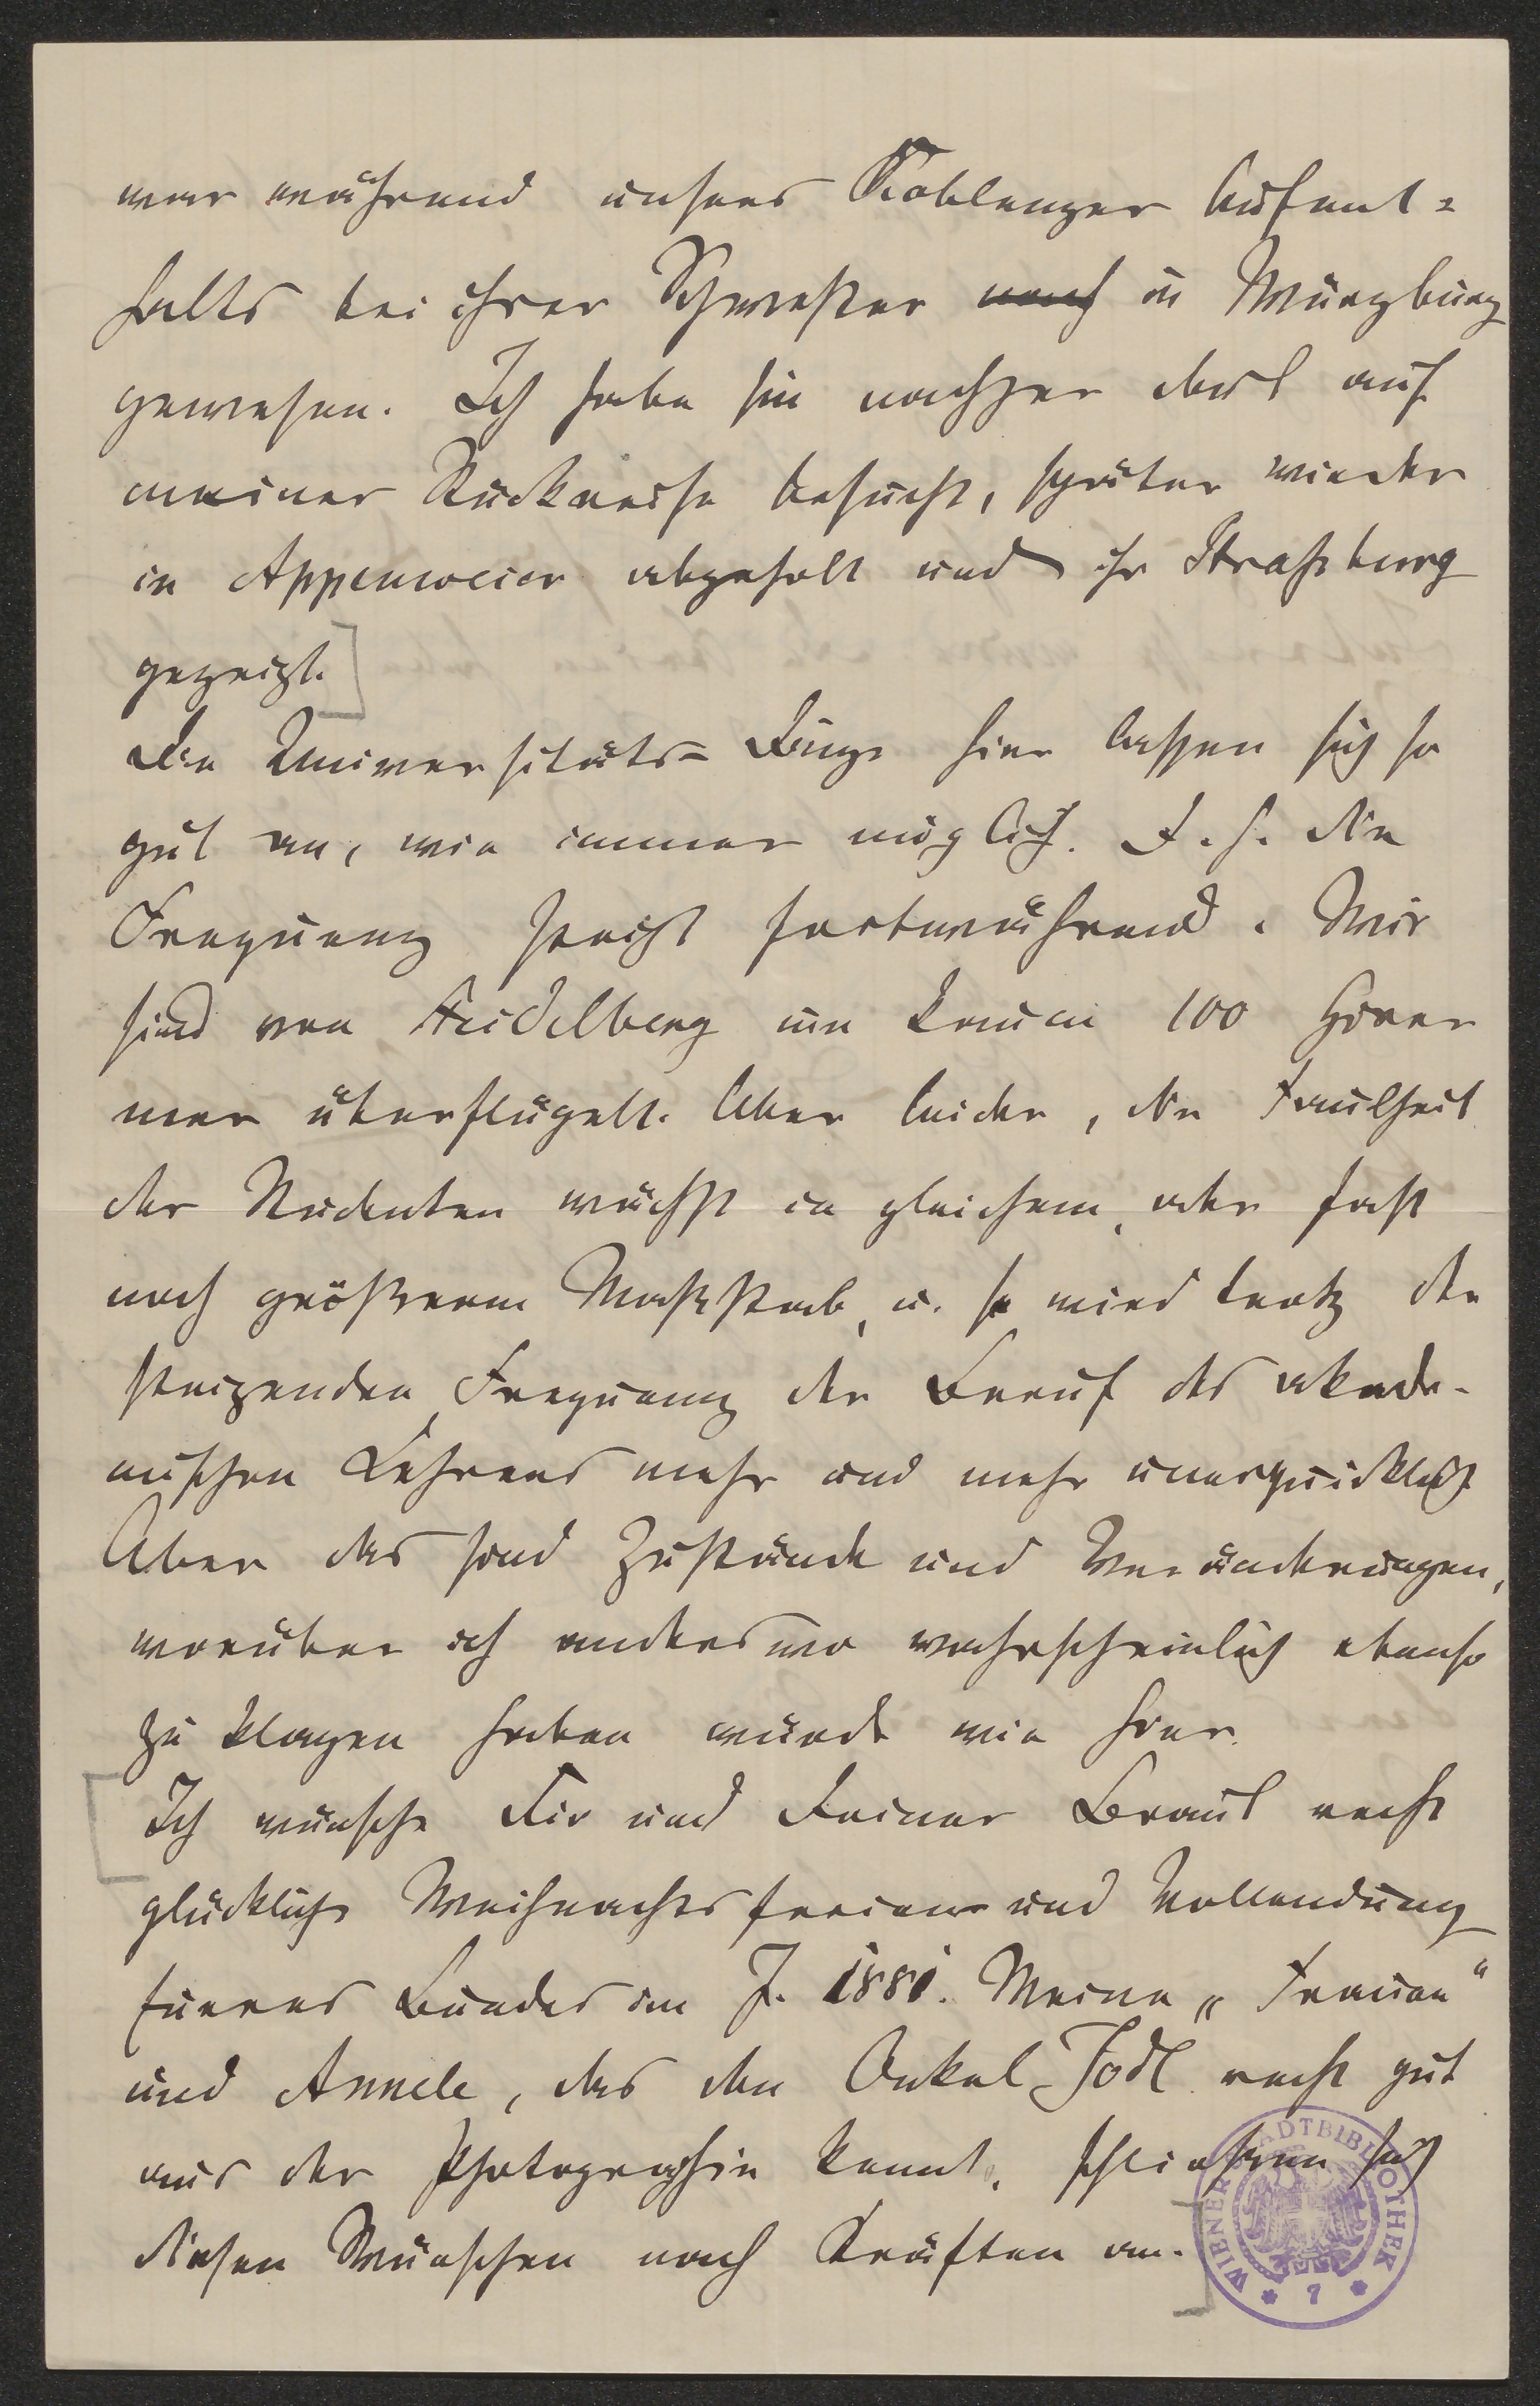 war während unsers Koblenzer Aufent=
halts bei ihrer Schwester noch in Würzburg
gewesen. Ich habe sie nachher dort auf
meiner Rückreise besucht, später wieder
in Appenweier abgeholt und ihr Straßburg
gezeigt.]
Die Universitäts=Dinge hier lassen sich so
gut an, wie immer möglich. D. h. die
Frequenz steigt fortwährend. Wir
sind von Heidelberg um kaum 100 Hörer
mer überflügelt. Aber leider, die Faulheit
der Studenten wächst in gleichem, oder fast
noch größrem Maßstab, u. so wird trotz der
steigenden Frequenz der Beruf des akade-
mischen Lehrers mehr und mehr unerquicklich
Aber das sind Zustände und Veränderungen,
worüber ich anderswo wahrscheinlich ebenso
zu klagen haben würde wie hier.
[Ich wünsche Dir und Deiner Braut recht
glückliche Weihnachtsferien und Vollendung
Eueres Bundes im J. 1881. Meine „Frauen“
und Annele, das den Onkel Jodl recht gut
aus der Photographie kennt, schließen sich
diesen Wünschen nach Kräften an.]
WIENER STADTBIBLIOTHEK
* 7 *